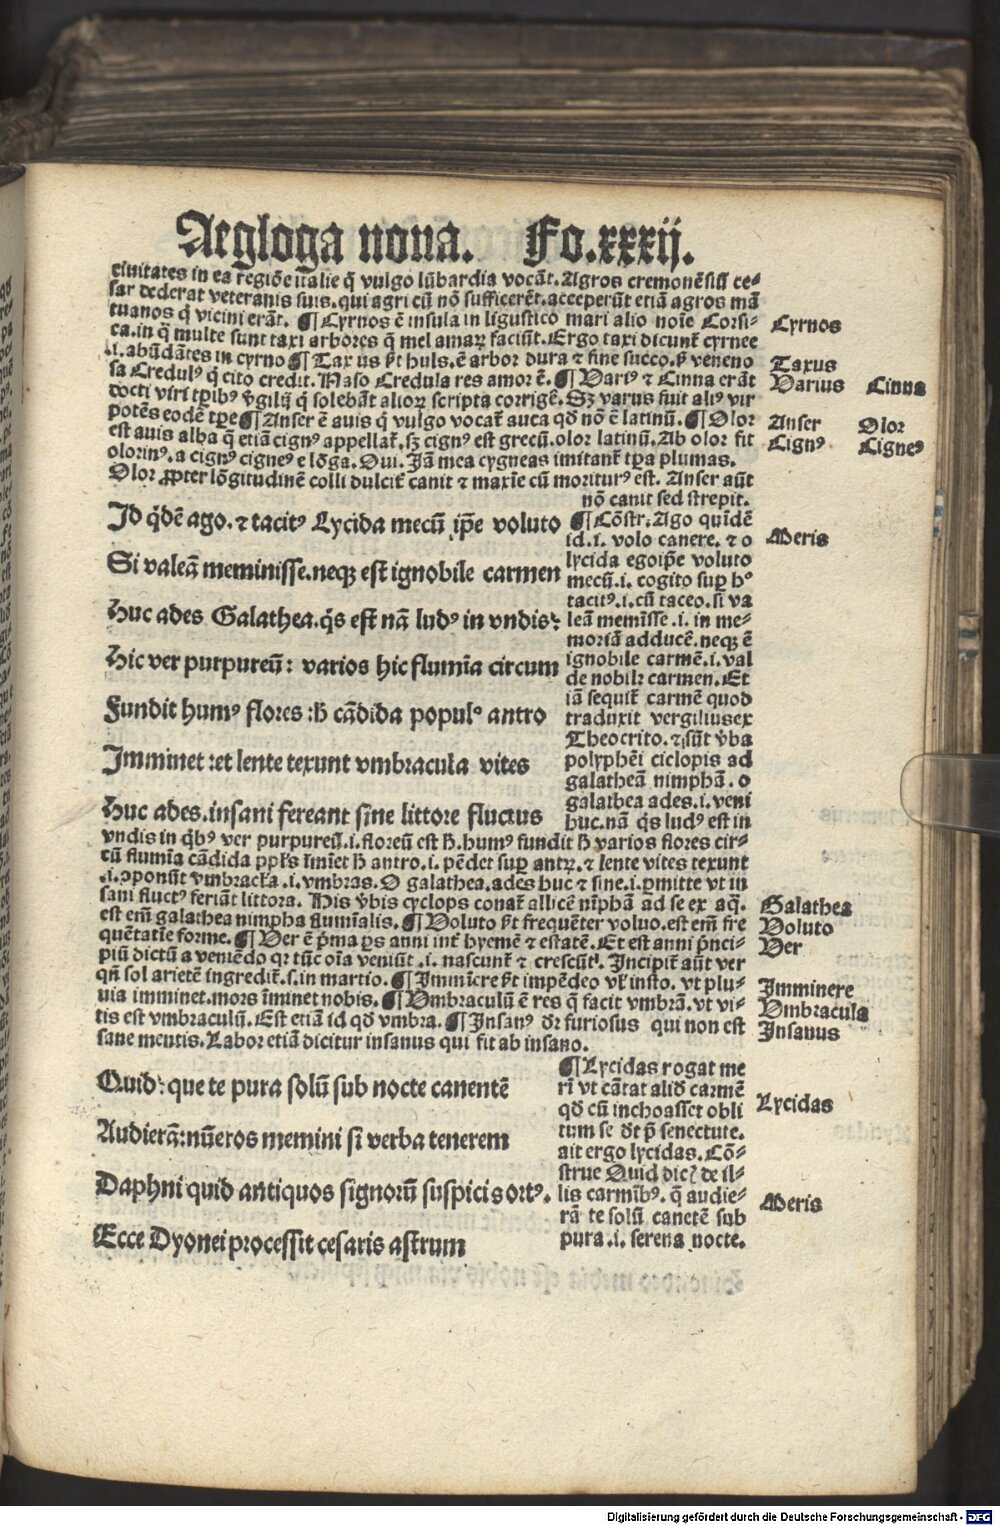 Aegloga nona. Fo.xxxij.
ciuitates in ea regiōe italie q̄ vulgo lūbardia vocāt. Agros cremonēsiū ce-
sar dederat veteranis suis. qui agri cū nō sufficerēt. acceperūt etiā agros mā
tuanos q̄ vicini erāt. ¶ Cyrnos ē insula in ligustico mari alio noīe Corsi-
Cyrnos
ca. in q̄ multe sunt taxi arbores q̄ mel amaꝝ faciūt. Ergo taxi dicunt̄ cyrnee
.i. abūdātes in cyrno ¶ Taxus ē arbor dura ⁊ sine succo. veneno
Taxus
sa Credulꝰ q̄ cito credit. Naso Credula res amor ē. ¶ Variꝰ ⁊ Cinna erāt
Varius Cinna
docti viri solebāt alioꝝ scripta corrigē. Sꝫ varus fuit aliꝰ vir
potēs eodē tꝑe ¶ Anser ē auis q̄ vulgo vocat̄ auca qđ nō ē latinū. ¶ Olor
Anser Olor
est auis alba q̄ etiā cignꝰ appellat̄. sꝫ cignꝰ est grecū. olor latinū. Ab olor fit
Cignꝰ Cigneꝰ
olorinꝰ. a cignꝰ cigneꝰ e lōga. Oui. Jā mea cygneas imitant̄ tꝑa plumas.
Olor ꝓpter lōgitudinē colli dulcit̄ canit ⁊ maxīe cū moriturꝰ est. Anser aūt
nō canit sed strepit.
Id q̇dē ago. ⁊ tacitꝰ Lycida mecū ip̄e voluto
Si valeā meminisse. neqꝫ est ignobile carmen
Huc ades Galathea. q̇s est nā ludꝰ in vndis:
Hic ver purpureū: varios hic flumīa circum
Fundit humꝰ flores: ħ cādida populꝰ antro
Imminet: et lente texunt vmbracula vites
Huc ades. insani fereant sine littore fluctus
¶ Cōstr. Ago quīdē
id .i. volo canere. ⁊ o
Meris
lycida egoip̄e voluto
mecū .i. cogito suꝑ hº
tacitꝰ .i. cū taceo. si va
leā meminīsse .i. in me-
moriā adducē. neqꝫ ē
ignobile carmē .i. val
de nobile carmen. Et
iā sequit̄ carmē quod
traduxit vergilius ex
Theocrito. ⁊ sūt v̄ba
polyphēi ciclopis ad
galatheā nimphā. o
galathea ades .i. veni
huc. nā q̇s ludꝰ est in
vndis in q̇bꝰ ver purpureū .i. floreū est ħ. humꝰ fundit ħ varios flores cir-
cū flumīa cādida īminet ħ antro .i. pēdet suꝑ antꝝ. ⁊ lente vites texunt
.i. ꝯponūt vmbracła .i. vmbras. O galathea. ades huc ⁊ sine .i. ꝑmitte vt in
sani fluctꝰ feriāt littora. His v̄bis cyclops conat̄ allicē nīphā ad se ex aq̄.
Galathea
est em̄ galathea nimpha flumīalis. ¶ Voluto frequēter voluo. est em̄ fre
Voluto
quētatīe forme. ¶ Ver ē p̄ma ꝑs anni int̄ hyemē ⁊ estatē. Et est anni p̄nci-
Ver
piū dictū a veniēdo qꝛ tūc oīa veniūt .i. nascunt̄ ⁊ crescūt. Incipit̄ aūt ver
qn̄ sol arietē ingredit̄ .s. in martio. ¶ Immīere impēdeo vł insto. vt plu-
Imminere
uia imminet. mors īminet nobis. ¶ Vmbraculū ē res q̄ facit vmbrā. vt vi-
Vmbracula
tis est vmbraculū. Est etiā id qđ vmbra. ¶ Insanꝰ dꝛ furiosus qui non est
Insanus
sane mentis. Labor etiā dicitur insanus qui fit ab insano.
Quid: que te pura solū sub nocte canentē
Audierā: nūeros memini si verba tenerem
Daphni quid antiquos signorū suspicis ortꝰ.
Ecce Dyonei processit cesaris astrum
¶ Lycidas rogat me
rī vt cātat aliđ carmē
qđ cū inchoasset obli
Lycidas
tum se p̄ senectute.
ait ergo lycidas. Cō-
strue Quid dicꝭ de il-
lis carmībꝰ. q̄ audie-
Meris
rā te solū canetē sub
pura .i. serena nocte.
Digitalisierung gefördert durch die Deutsche Forschungsgemeinschaft - DFG